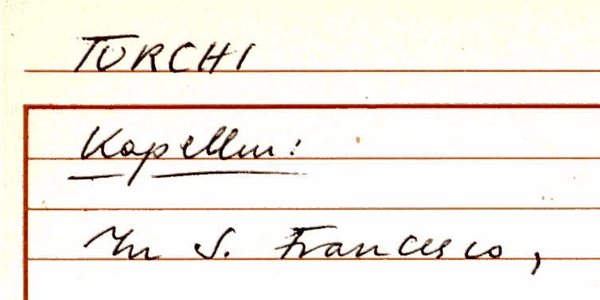 TURCHI
Kapellen:
In S. Francesco,